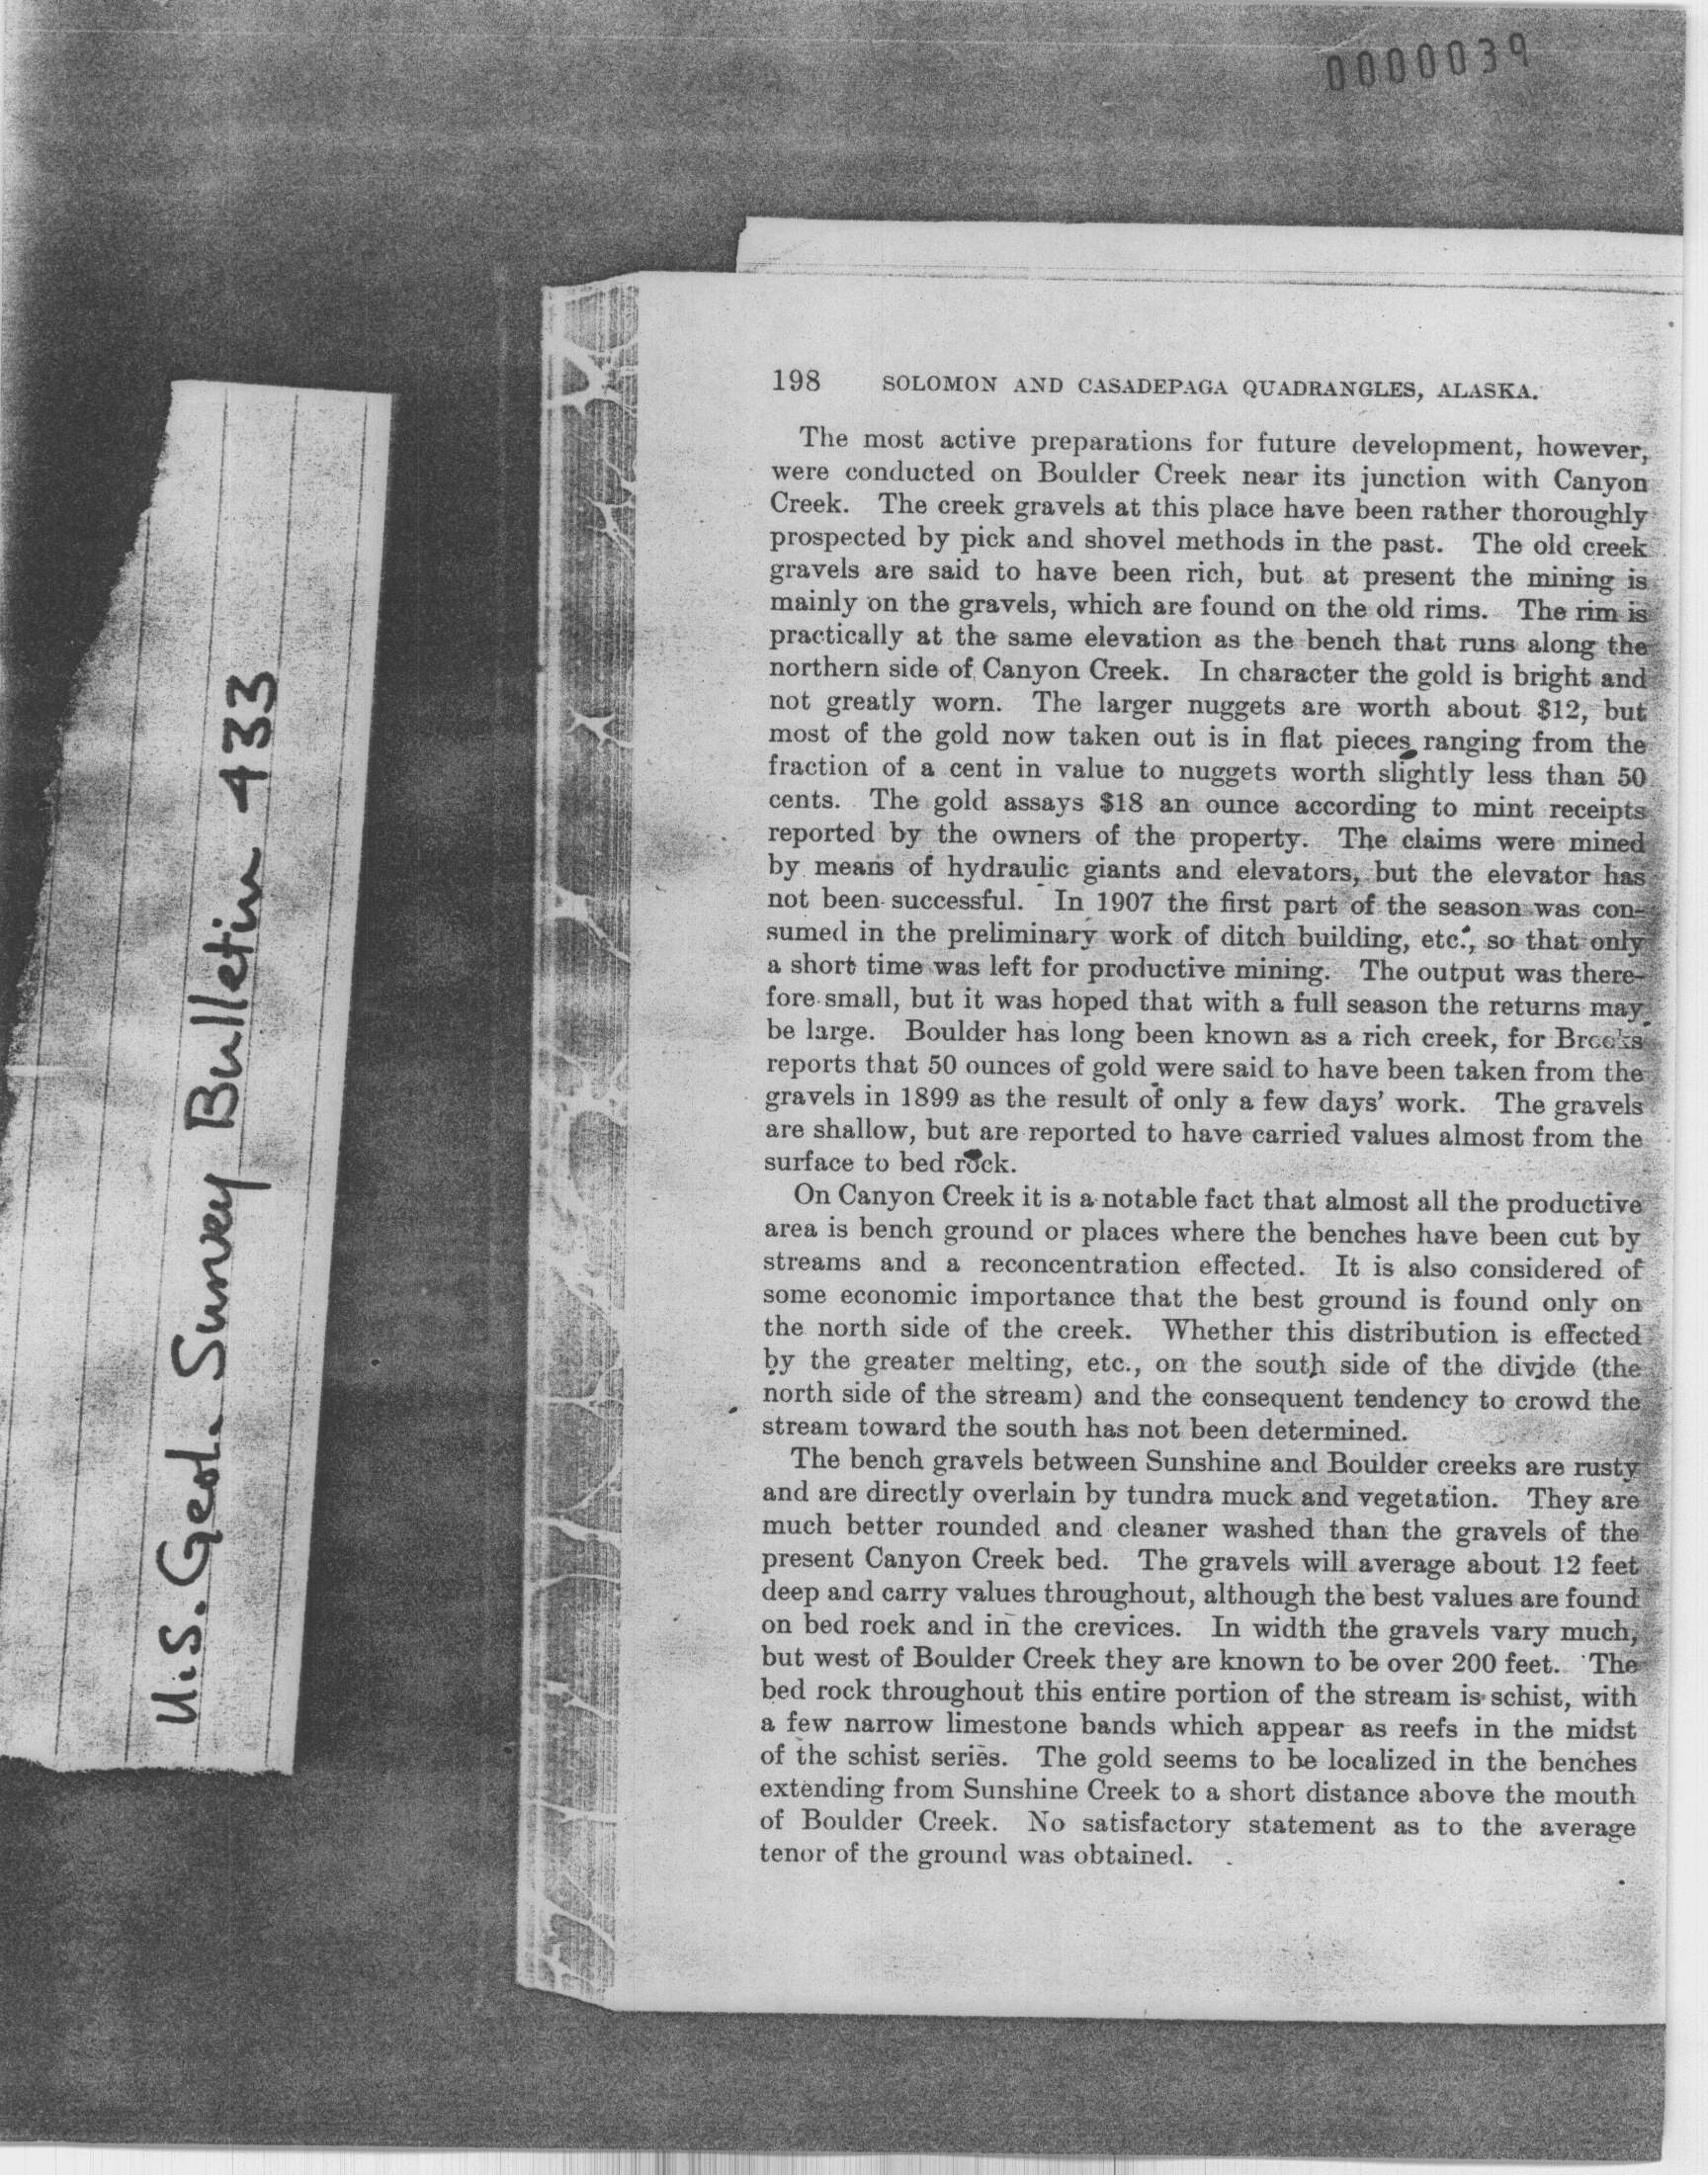 0000039
U.S. Geol. Survey Bulletin 433
198 SOLOMON AND CASADEPAGA QUADRANGLES, ALASKA.
The most active preparations for future development, however,
were conducted on Boulder Creek near its junction with Canyon
Creek. The creek gravels at this place have been rather thoroughly
prospected by pick and shovel methods in the past. The old creek
gravels are said to have been rich, but at present the mining is
mainly on the gravels, which are found on the old rims. The rim is
practically at the same elevation as the bench that runs along the
northern side of Canyon Creek. In character the gold is bright and
not greatly worn. The larger nuggets are worth about $12, but
most of the gold now taken out is in flat pieces ranging from the
fraction of a cent in value to nuggets worth slightly less than 50
cents. The gold assays $18 an ounce according to mint receipts
reported by the owners of the property. The claims were mined
by means of hydraulic giants and elevators, but the elevator has
not been successful. In 1907 the first part of the season was con-
sumed in the preliminary work of ditch building, etc., so that only
a short time was left for productive mining. The output was there-
fore small, but it was hoped that with a full season the returns may
be large. Boulder has long been known as a rich creek, for Brooks
reports that 50 ounces of gold were said to have been taken from the
gravels in 1899 as the result of only a few days' work. The gravels
are shallow, but are reported to have carried values almost from the
surface to bed rock.
On Canyon Creek it is a notable fact that almost all the productive
area is bench ground or places where the benches have been cut by
streams and a reconcentration effected. It is also considered of
some economic importance that the best ground is found only on
the north side of the creek. Whether this distribution is effected
by the greater melting, etc., on the south side of the divide (the
north side of the stream) and the consequent tendency to crowd the
stream toward the south has not been determined.
The bench gravels between Sunshine and Boulder creeks are rusty
and are directly overlain by tundra muck and vegetation. They are
much better rounded and cleaner washed than the gravels of the
present Canyon Creek bed. The gravels will average about 12 feet
deep and carry values throughout, although the best values are found
on bed rock and in the crevices. In width the gravels vary much,
but west of Boulder Creek they are known to be over 200 feet. The
bed rock throughout this entire portion of the stream is schist, with
a few narrow limestone bands which appear as reefs in the midst
of the schist series. The gold seems to be localized in the benches
extending from Sunshine Creek to a short distance above the mouth
of Boulder Creek. No satisfactory statement as to the average
tenor of the ground was obtained.